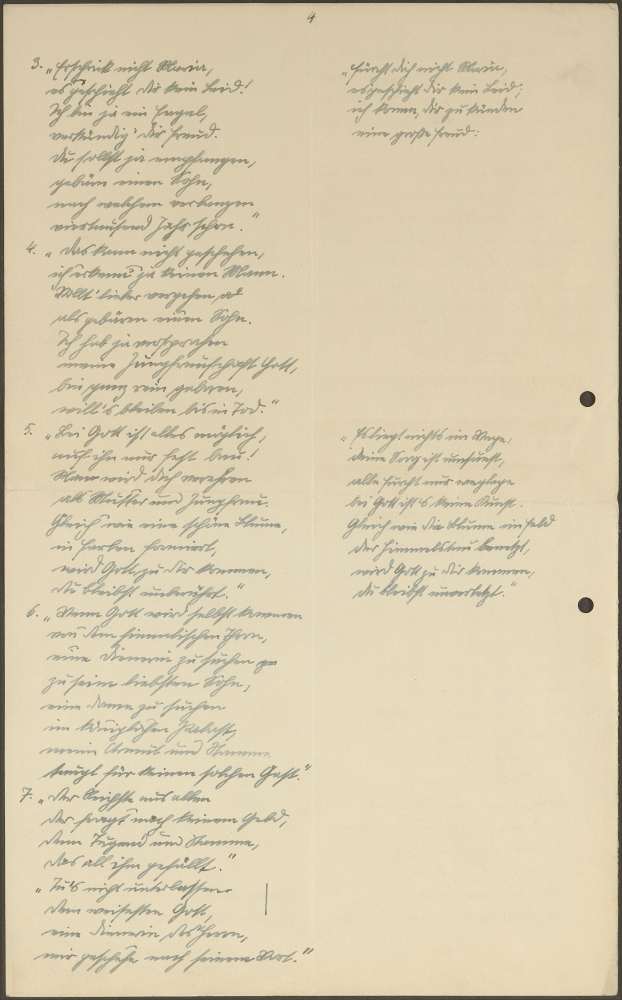 4
3. „Erschrick nicht Maria,
es geschieht dir kein Leid!
Ich bin ja ein Engel,
verkündig' dir Freud.
Du sollst ja empfangen,
gebären einen Sohn,
nach welchem verlangen
viertausend Jahr schon."
4. „Das kann nicht geschehen,
ich erkenn' ja keinen Mann.
Wollt' lieber vergehen,
als gebären einen Sohn.
Ich hab ja versprochen
meine Jungfrauschaft Gott,
bin ganz rein geboren,
will's bleiben bis in Tod."
5. „Bei Gott ist alles möglich,
auf ihn nur fest bau!
Man wird dich verehren
als Mutter und Jungfrau.
Gleich wie eine schöne Blume,
in Farben formiert,
wird Gott zu dir kommen,
du bleibst unberührt."
6. „Wenn Gott wird selbst kommen
von dem himmlischen Thron,
eine Dienerin zu suchen
zu seim liebsten Sohn,
eine Dame zu suchen
im königlichen Palast,
meine Armut und Stamme
taugt für keinen solchen Gast."
7. „Der Reichste aus allen
der fragt nach keinem Geld,
dein Tugend und Stamme,
das all ihm gefällt."
„Tu's nicht unterlassen
dem weisesten Gott,
eine Dienerin des Herrn,
mir geschehe nach seinem Wort."
„Fürcht dich nicht Maria,
es geschieht dir kein Leid;
ich komm, dir zu künden
eine große Freud:
„Es liegt nichts im Wege,
deine Sorg ist umsunst,
alle Furcht nur weglege
bei Gott ist's keine Kunst.
Gleich wie die Blume im Feld
der Himmelstau benetzt,
wird Gott zu dir kommen,
du bleibst unverletzt."